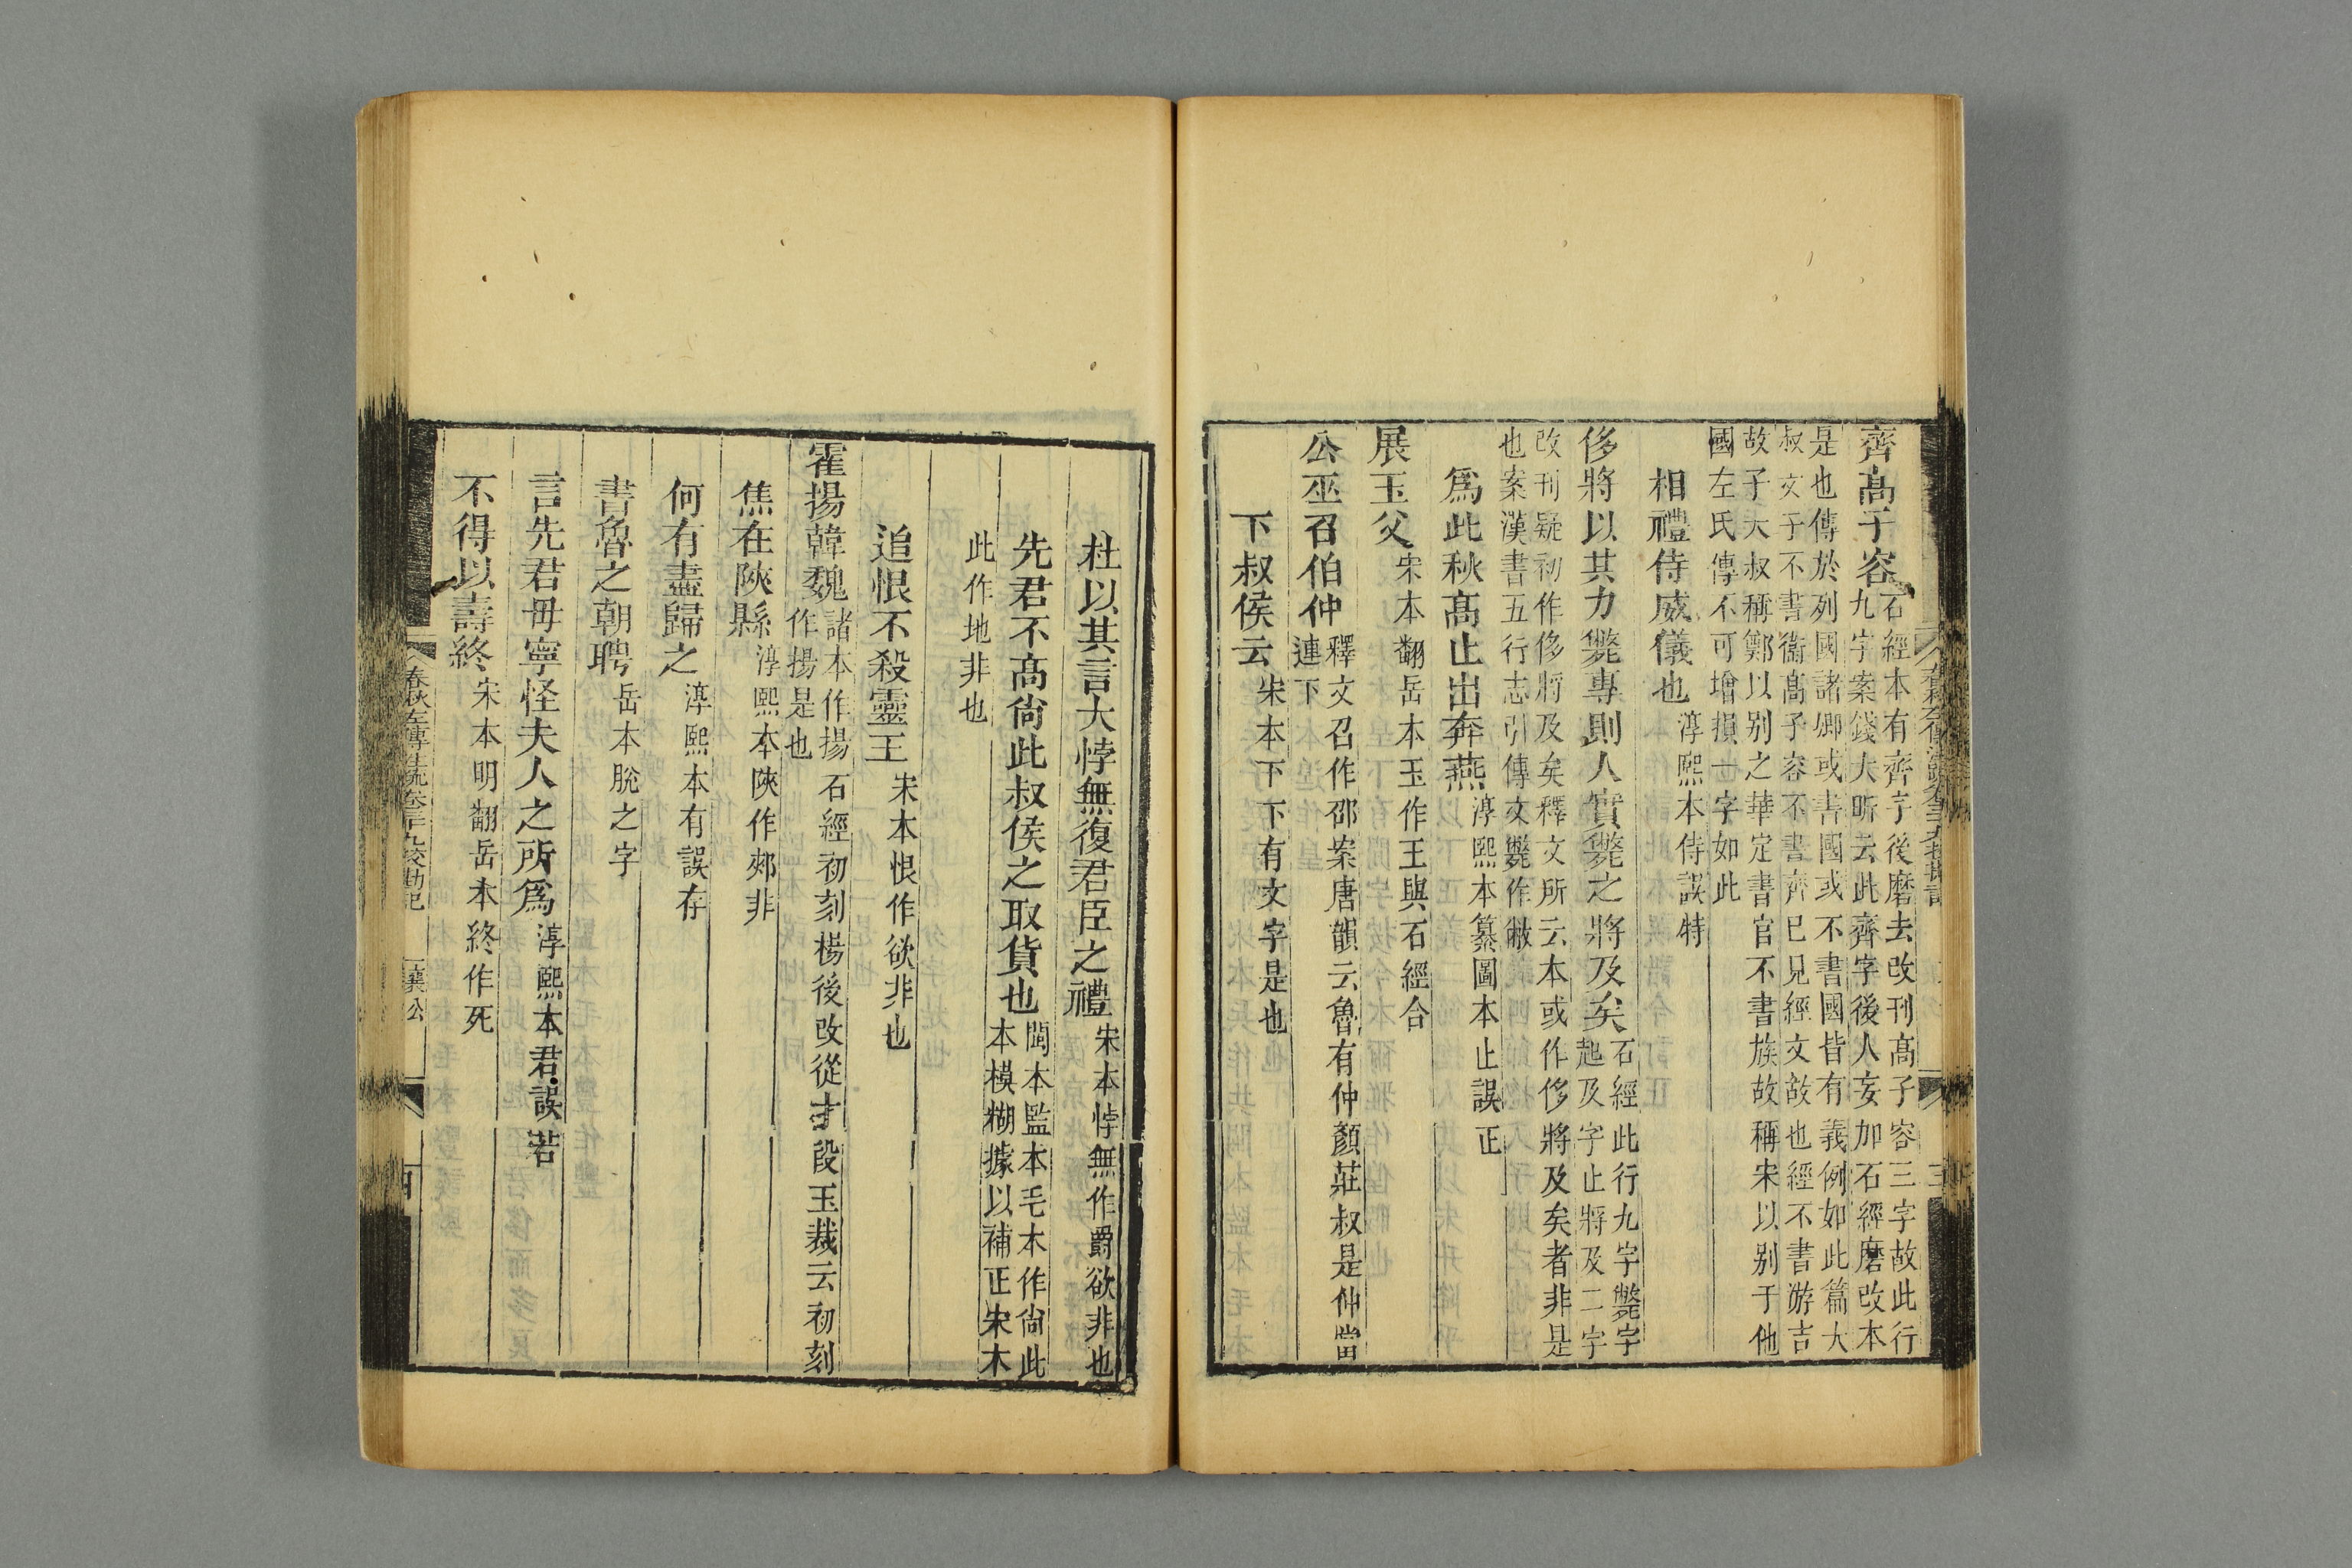 齊高子容石經本有齊字後磨去改刊高子容三字故此行
九字案錢大昕云此齊字後人妄加石經磨改本
是也傳於列國諸卿或書國或不書國皆有義例如此篇大
叔文子不書衞高子容不書齊已見經文故也經不書游吉
故子大叔稱鄭以别之華定書官不書族故稱宋以别于他
國左氏傳不可增損一字如此
相禮侍威儀也淳熙本侍誤特
侈將以其力斃專則人實斃之將及矣石經此行九字斃字
起及字止將及二字
改刊疑初作侈將及矣釋文所云本或作侈將及矣者非是
也案漢書五行志引傳文斃作敝
爲此秋高止出奔燕淳熙本纂圖本止誤正
展玉父宋本翻岳本玉作王與石經合
公巫召伯仲釋文召作邵案唐韻云魯有仲顏莊叔是仲當
連下
下叔侯云宋本下下有文字是也
杜以其言大悖無復君臣之禮宋本悖無作爵欲非也
先君不高尚此叔侯之取貨也閩本監本毛本作尚此
本模糊據以補正宋本
此作地非也
追恨不殺靈王宋本恨作欲非也
霍揚韓魏諸本作揚石經初刻楊後改從才段玉裁云初刻
作揚是也
焦在陜縣淳熙本陜作郟非
何有盡歸之淳熙本有誤存
書魯之朝聘岳本脫之字
言先君毋寧怪夫人之所爲淳熙本君誤若
不得以壽終宋本明翻岳本終作死
春秋左傳注疏卷三十九校勘記
襄公
四